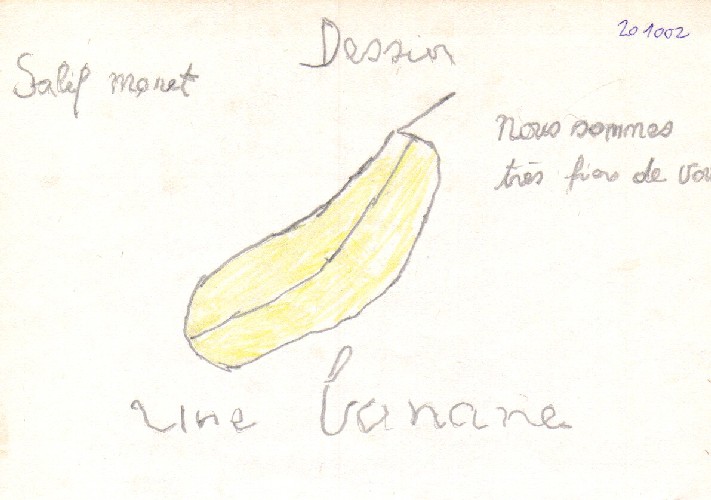 201002
Dessin
Salif moret
Nous sommes
très fiers de vou
une banane